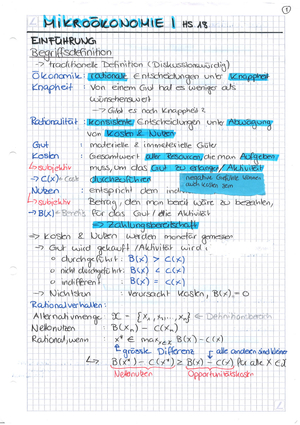 1
MIKROÖKONOMIE I HS 18
EINFÜHRUNG
Begriffsdefinition
-> traditionelle Definition (Diskussionswürdig)
Ökonomik : rationale Entscheidungen unter Knappheit
Knapheit : Von einem Gut hat es weniger als
wünschenswert
-> Gibt es noch Knappheit?
Rationalität : konsistente Entscheidungen unter Abwägung
von Kosten & Nutzen
Gut : materielle & immaterielle Güter
Kosten : Gesamtwert aller Resourcen, die man aufgeben
↳ subjektiv muss, um das Gut zu erlangen / Aktivität
-> C(x) = Cost durchzuführen negative Gefühle können auch Kosten sein
Nutzen : entspricht dem indiv.
↳ subjektiv Betrag, den man bereit wäre zu bezahlen,
-> B(x) = Benefit für das Gut / die Aktivität
=> Zahlungsbereitschaft
-> Kosten & Nutzen werden monetär gemessen
-> Gut wird gekauft / Aktivität wird:
o durchgeführt : B(x) > C(x)
o nicht durchgeführt : B(x) < C(x)
o indifferent : B(x) = C(x)
-> Nichtstun : verursacht Kosten, B(x) = 0
Rationalverhalten:
Alternativmenge : X = {x₁, x₂, ... xₙ} ← Definitionsbereich
Nettonutzen : B(xₙ) - C(xₙ)
Rational, wenn : x* ∈ max x∈X B(x) - C(x)
↑ grösste Differenz ↓ alle anderen sind kleiner
↳ B(x*) - C(x*) ≥ B(x) - C(x) für alle x ∈ X
Nettonutzen Opportunitätskosten